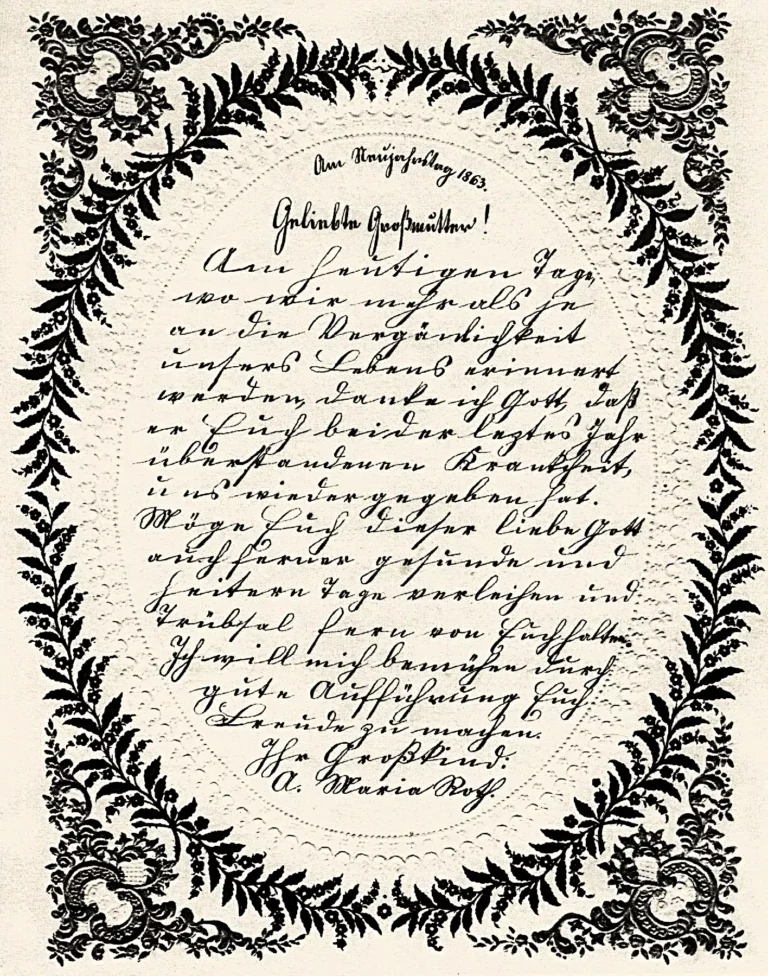 Am Neujahrstag 1863.
Geliebte Großmutter!
Am heutigen Tage,
wo wir mehr als je
an die Vergänlichkeit
unsers Lebens erinnert
werden, danke ich Gott, daß
er Euch bei der leztes Jahr
überstandenen Krankheit,
uns wiedergegeben hat.
Möge Euch dieser liebe Gott
auch ferner gesunde und
heitern Tage verleihen und
Trübsal fern von Euch halten.
Ich will mich bemühen durch
gute Aufführung Euch
Freude zu machen.
Ihr Großkind:
A. Maria Roth.